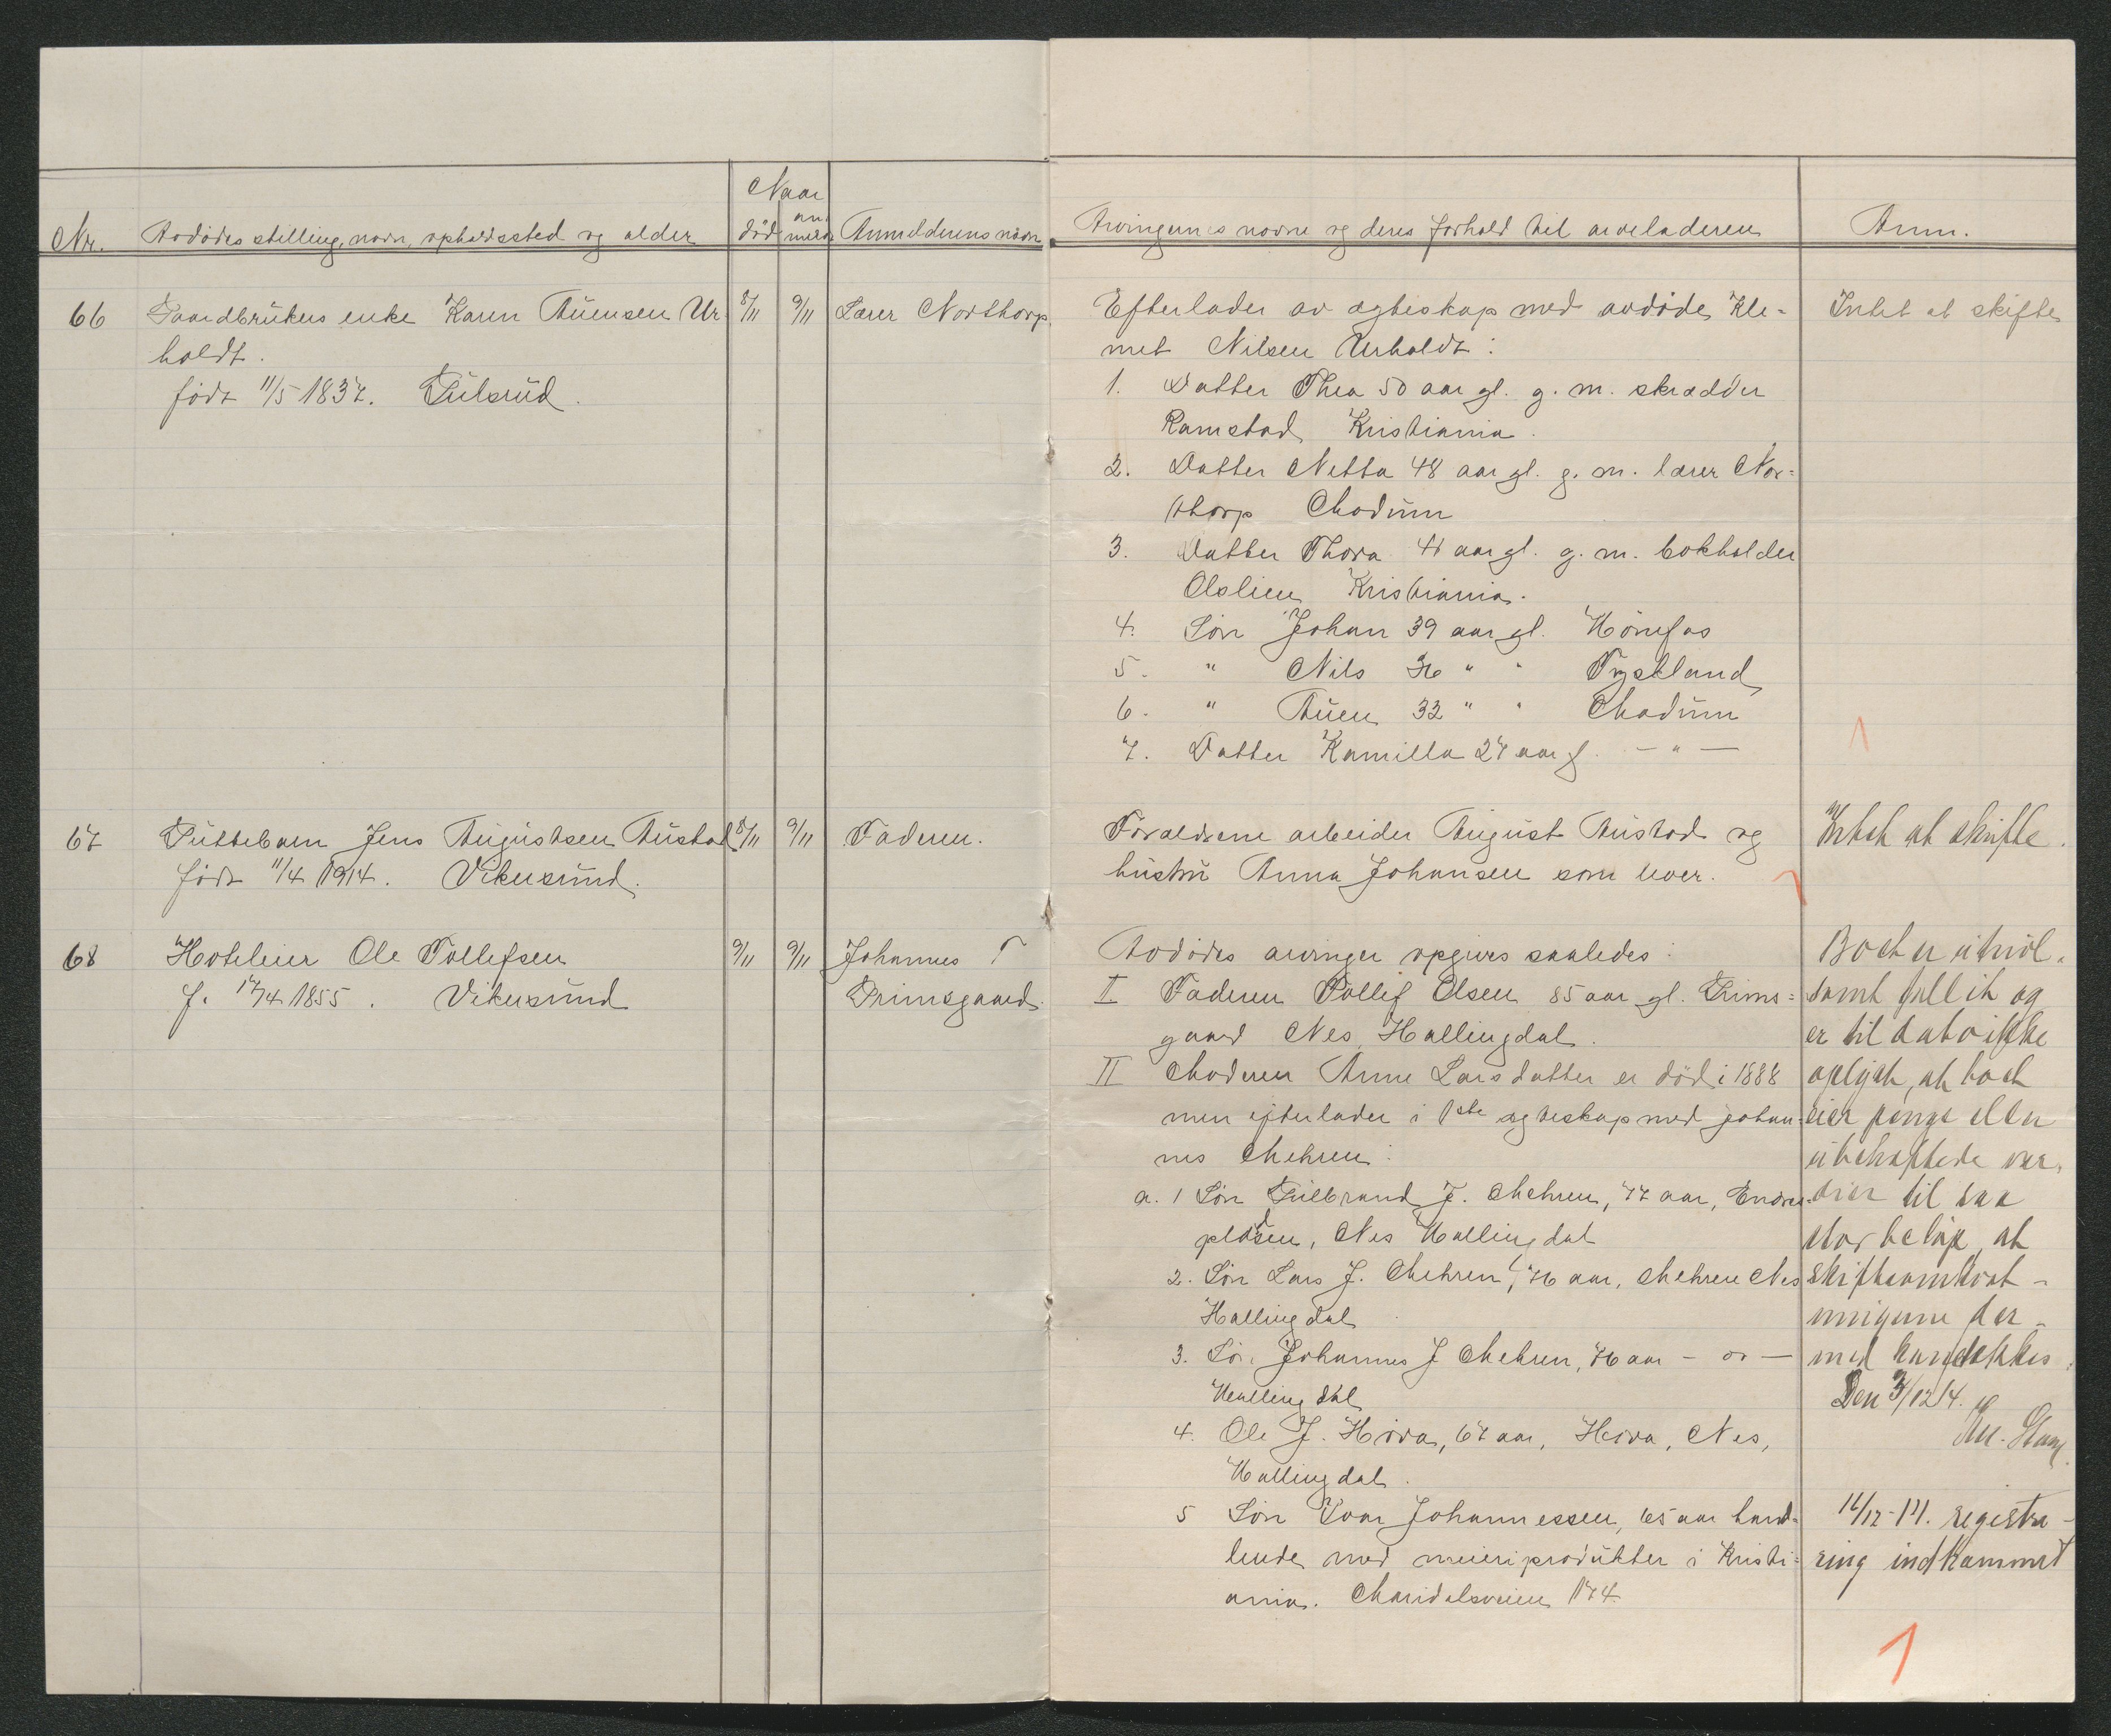 Naar
Nr. Avdødes stilling, navn, opholdssted og alder død anmeldt Anmelderens navn Arvingernes navne og deres forhold til arveladeren Anm.
66 Gaardbrukers enke Karen Auensen Ur- 8/11 9/11 Lærer Northorp
holdt.
født 11/5 1837. Gulsrud.
Efterlader av egteskap med avdøde Kle-
met Nilsen Urholdt:
1. Datter Thea 50 aar gl. g. m. skrædder
Ramstad Kristiania.
2. Datter Netta 48 aar gl. g. m. lærer Nor-
thorp Modum
3. Datter Thora 41 aar gl. g. m. bokholder
Oslien Kristiania.
4. Søn Johan 39 aar gl. Hønefos
5. " Nils 36 " " Tyskland
6. " Auen 32 " " Modum
7. Datter Kamilla 27 aar g. — " —
Intet at skifte
1
67 Guttebarn Jens Augustsen Austad 8/11 9/11 Faderen.
født 11/4 1914. Vikersund.
Forældrene arbeider August Austad og
hustru Anna Johansen som lever.
Intet at skifte.
1
68 Hoteleier Ole Tollefsen 9/11 9/11 Johannes T
f. 17/4 1855. Vikersund Trimsgaard.
Avdødes arvinger opgives saaledes:
I Faderen Tollef Olsen 85 aar gl. Trims-
gaard Nes, Hallingdal.
II Moderen Anne Larsdatter er død i 1888
men efterlader i 1ste egteskap med Johan-
nes Mehren:
a. 1 Søn Gulbrand J. Mehren, 77 aar, Endre-
pladsen, Nes Hallingdal
2. Søn Lars J. Mehren, 76 aar, Mehren Nes
Hallingdal
3. Søn Johannes J Mehren, 76 aar — " —
Hallingdal
4. Ole J. Hova, 67 aar, Hova, Nes,
Hallingdal.
5 Søn Ivar Johannessen, 65 aar hand-
lende med meieriprodukter i Kristi-
ania. Maridalsveien 174.
Boet er utvil-
somt fallit og
er til dato ikke
oplyst, at boet
eier penge eller
ubehæftede vær-
dier til saa
stor beløp, at
skifteomkost-
ningerne der-
med kan dekkes.
Den 3/12 14.
14/12-14. registre-
ring indkommet
1